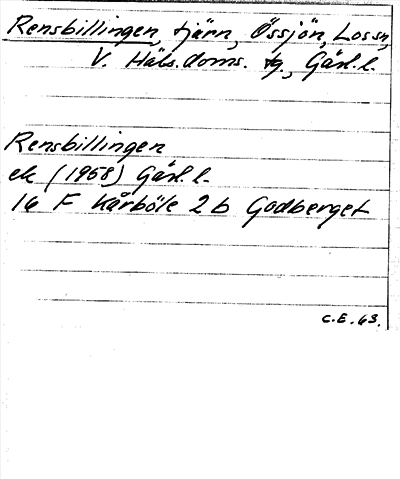 Rensbillingen, tjärn, Össjön, Los sn,
V. Häls. doms. tg., Gävl. l.
Rensbillingen
ek (1958) Gävl. l.
16 F Kårböle 2 b Godberget
C.E. 63.